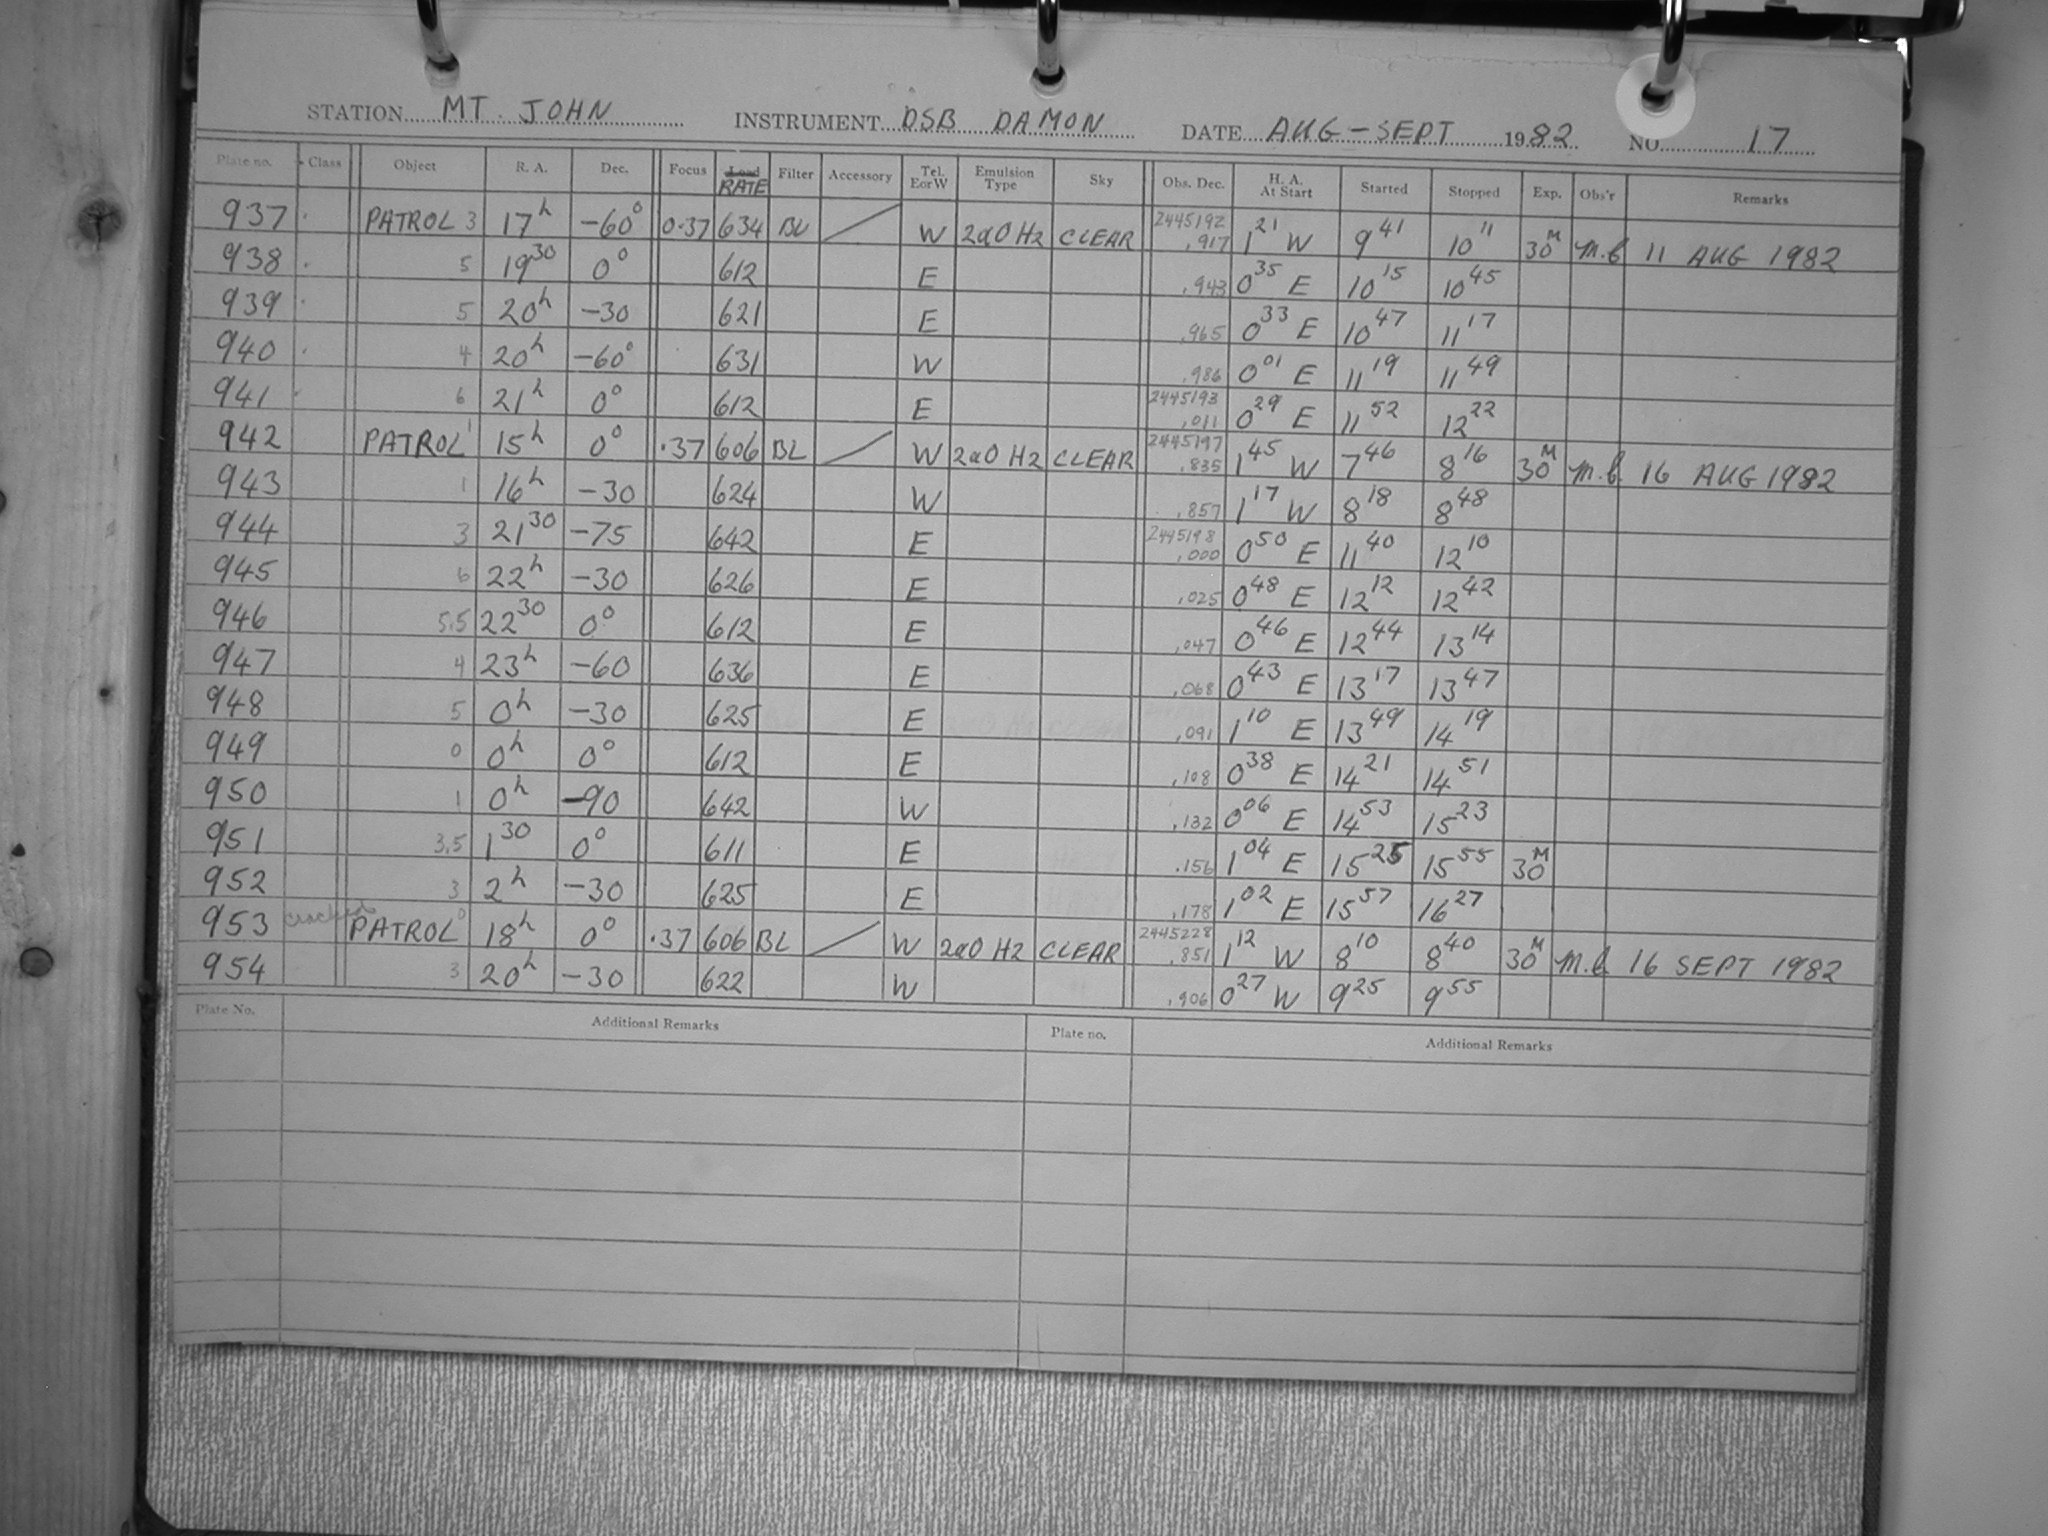 STATION MT. JOHN INSTRUMENT DSB DAMON DATE AUG-SEPT 1982 NO. 17
Plate no. Class Object R. A. Dec. Focus Load RATE Filter Accessory Tel. E or W Emulsion Type Sky Obs. Dec. H. A. At Start Started Stopped Exp. Obs'r Remarks
937 PATROL 3 17h -60° 0.37 634 BL W 2aO H2 CLEAR 2445192 .917 1 21 W 9 41 10 11 30M m.b 11 AUG 1982
938 5 19 30 0° 612 E .943 0 35 E 10 15 10 45
939 5 20h -30 621 E .965 0 33 E 10 47 11 17
940 4 20h -60° 631 W .986 0 01 E 11 19 11 49
941 6 21h 0° 612 E 2445193 .011 0 29 E 11 52 12 22
942 PATROL 1 15h 0° .37 606 BL W 2aO H2 CLEAR 2445197 .835 1 45 W 7 46 8 16 30M m.b 16 AUG 1982
943 1 16h -30 624 W .857 1 17 W 8 18 8 48
944 3 21 30 -75 642 E 2445198 .000 0 50 E 11 40 12 10
945 6 22h -30 626 E .025 0 48 E 12 12 12 42
946 5.5 22 30 0° 612 E .047 0 46 E 12 44 13 14
947 4 23h -60 636 E .068 0 43 E 13 17 13 47
948 5 0h -30 625 E .091 1 10 E 13 49 14 19
949 0 0h 0° 612 E .108 0 38 E 14 21 14 51
950 1 0h -90 642 W .132 0 06 E 14 53 15 23
951 3.5 1 30 0° 611 E .156 1 04 E 15 25 15 55 30M
952 3 2h -30 625 E .178 1 02 E 15 57 16 27
953 cracked PATROL 0 18h 0° .37 606 BL W 2aO H2 CLEAR 2445228 .851 1 12 W 8 10 8 40 30M m.b 16 SEPT 1982
954 3 20h -30 622 W .906 0 27 W 9 25 9 55
Plate No. Additional Remarks Plate no. Additional Remarks